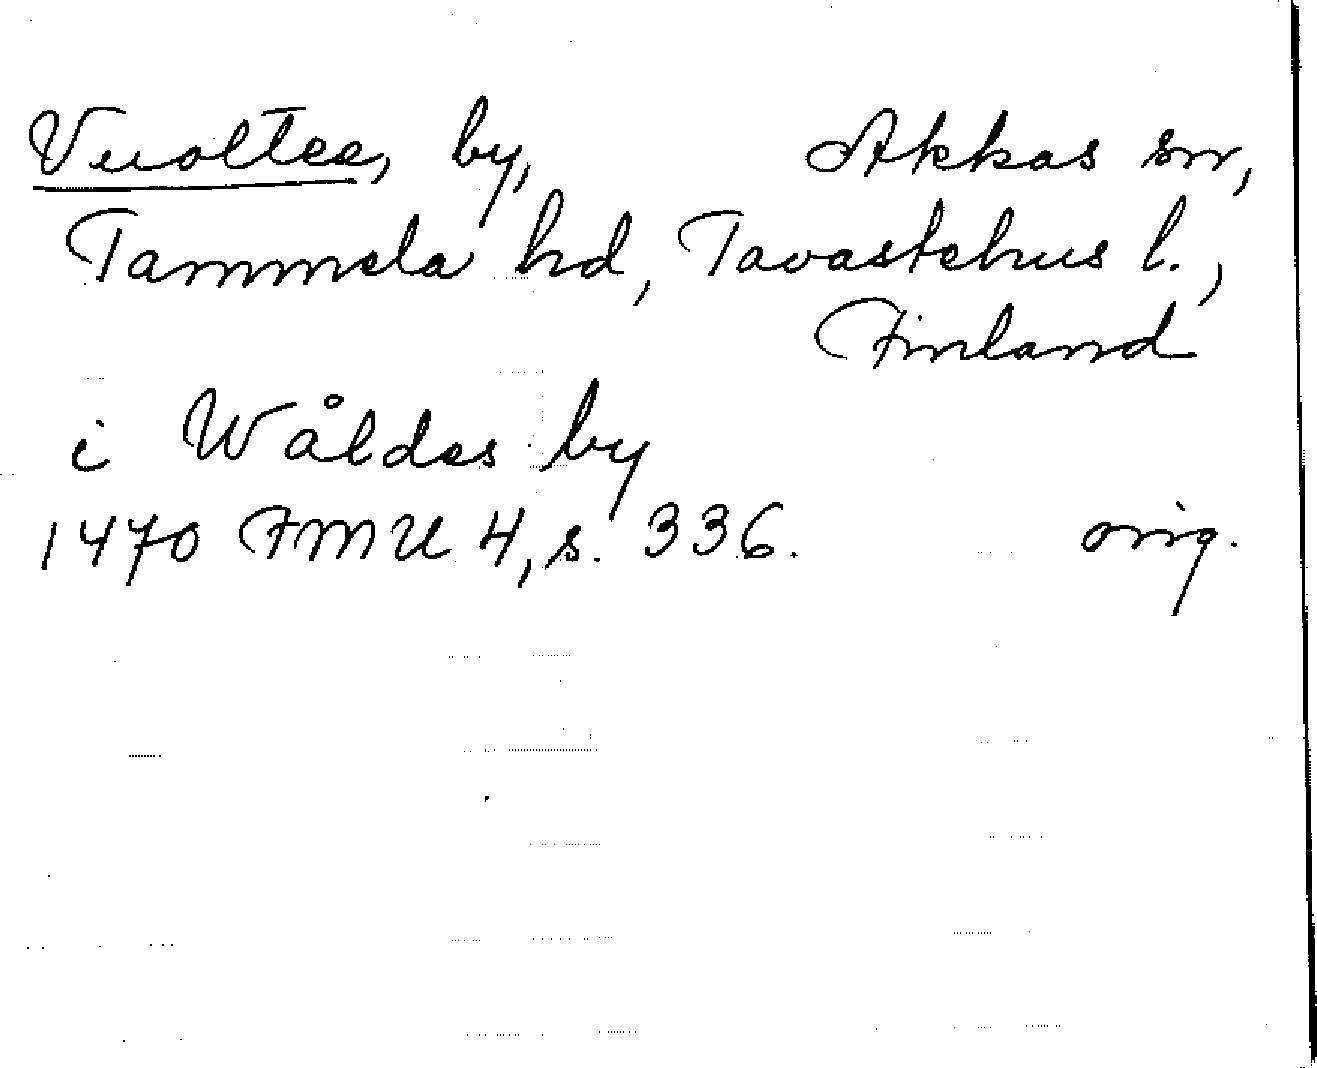 Vuoltee, by, Akkas sn,
Tammela hd, Tavastehus l.,
Finland
i Wåldes by
1470 FMU 4, s. 336. orig.